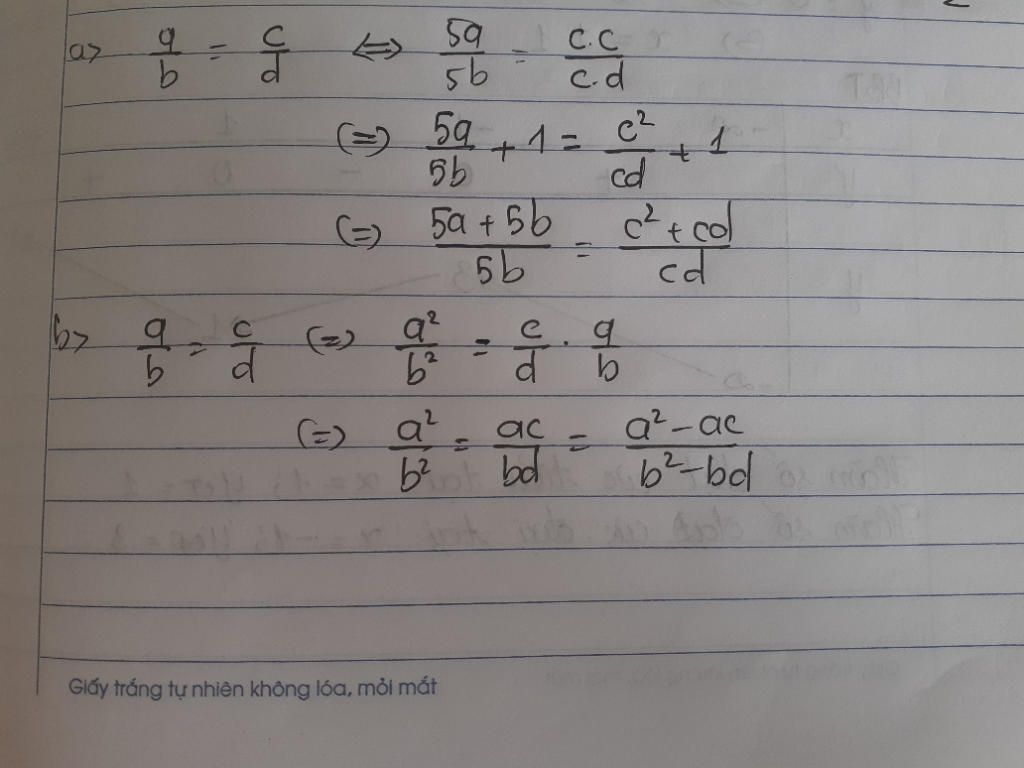 a> a/b = c/d <=> 5a/5b = c.c/c.d
(=) 5a/5b + 1 = c²/cd + 1
(=) (5a + 5b)/5b = (c² + cd)/cd
b> a/b = c/d (=) a²/b² = c/d . a/b
(=) a²/b² = ac/bd = (a² - ac)/(b² - bd)
Giấy trắng tự nhiên không lóa, mỏi mắt